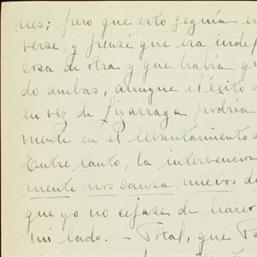 nes; pero que esto seguía en
verse, y pensé que era indef
cosa de otra y que había qu
do ambas, aunque el éxito d
en vez de Lizarraga podría
mente en el levantamiento d
Entre tanto, la intervencion
mente nos causa nuevos d
que yo no cejase de hacer
mi lado. - Total, que